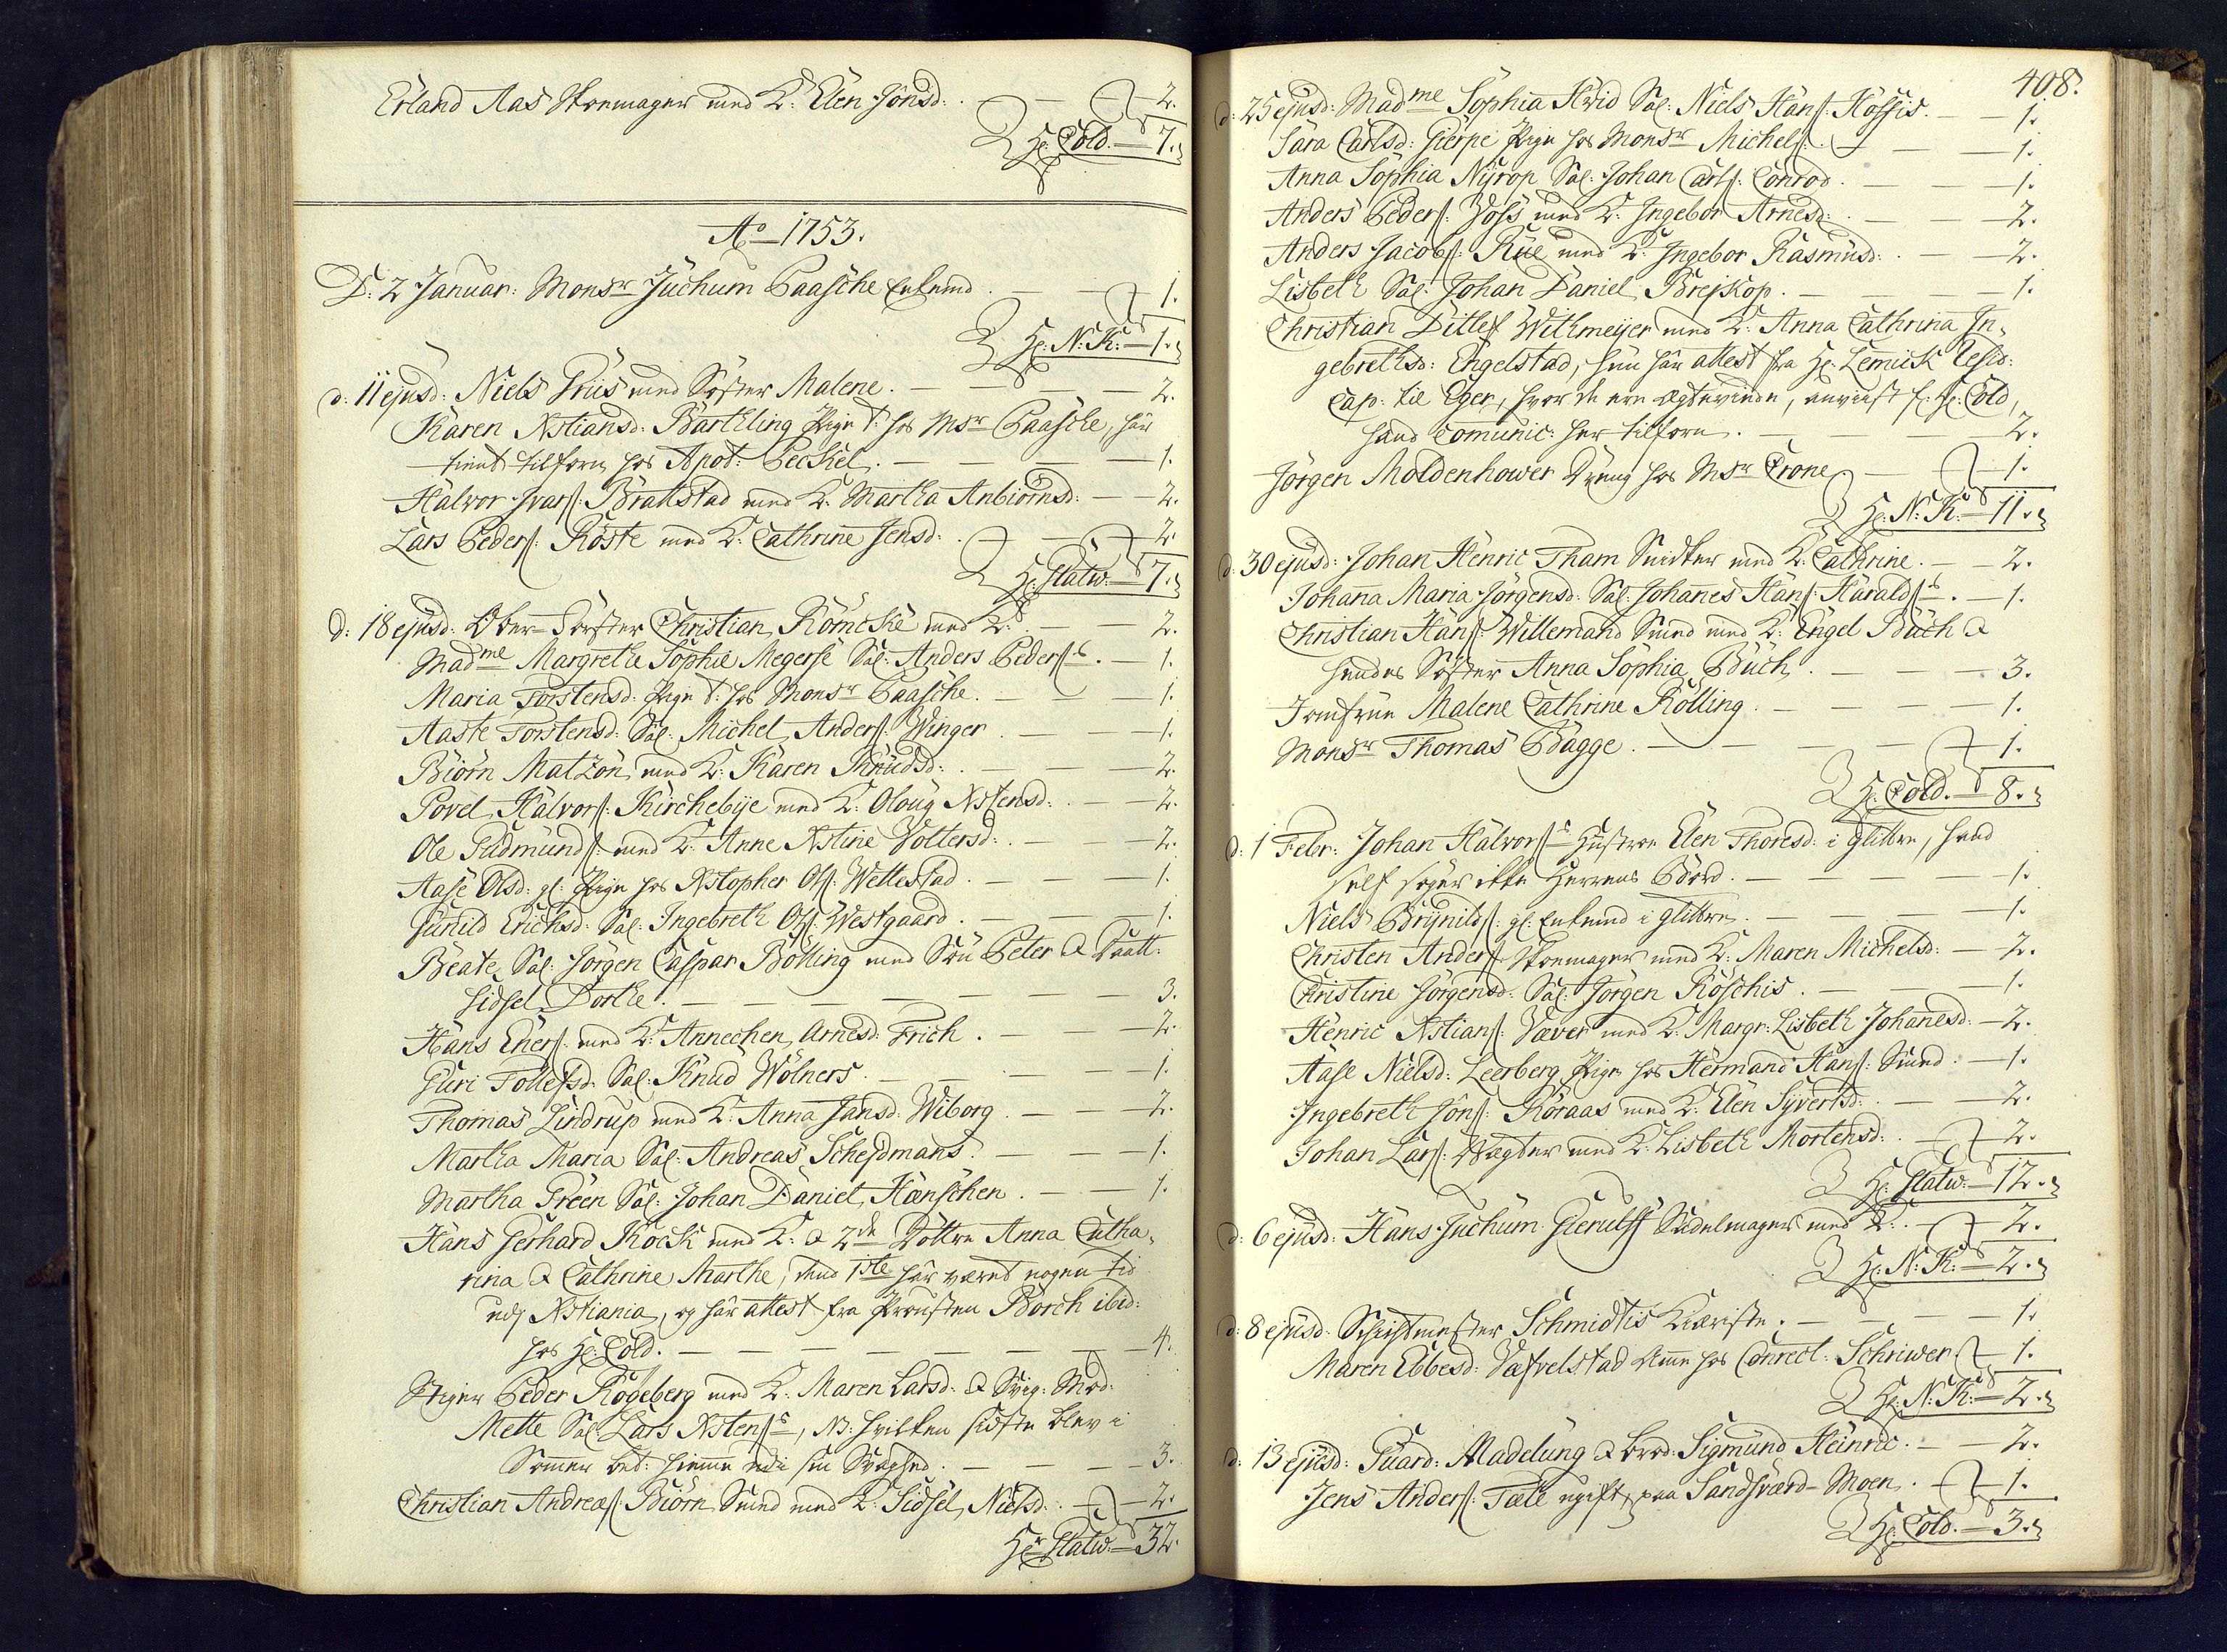 Erland Aas Skoemager med K: Elen Jonsd: . — — 2.
Hr: Cold. — 7.
Ao 1753.
D: 2 Januar: Monsr Juchum Paasche Enkemd . — — 1.
Hr: N: K: — 1.
d: 11 ejusd: Niels Friis med Søster Malene . — — 2.
Karen Xstiansd: Barthling Pige t: hos Msr Paasche, har
tient tilforn hos Apot: Peckel . — — 1.
Halvor Ivars: Brattstad med K: Martha Anbiørnsd: — 2.
Lars Peders: Røste med K: Cathrine Jensd: . — — 2.
Hr: Flatw: — 7.
d: 18 ejusd: Ober-Førster Christian Römcke med K: — 2.
Madme Margrethe Sophie Megerse Sal: Anders Peders: . — 1.
Maria Torstensd: Pige t: hos Monsr Paasche . — 1.
Aaste Torstensd: Sal: Michel Anders: Winger . — 1.
Biørn Matzøn med K: Karen Knudsd: . — 2.
Povel Halvors: Kirchebye med K: Oloug Xstensd: . — 2.
Ole Gudmunds: med K: Anne Xstine Woltersd: . — 2.
Aase Olsd: gl: Pige hos Xstopher Ols: Wellestad . — 1.
Gunild Erichsd: Sal: Ingebreth Ols: Westgaard . — 1.
Beate Sal: Jørgen Caspar Bölling med Søn Peter & Daatt:
Sidsel Dorthe . — 3.
Hans Eners: med K: Annechen Arnesd: Frich . — 2.
Guri Tollefsd: Sal: Knud Wölners . — 1.
Thomas Lindrup med K: Anna Jansd: Wiborg . — 2.
Martha Maria Sal: Andreas Schejdmans . — 1.
Martha Green Sal: Johan Daniel Hænschen . — 1.
Hans Gerhard Kock med K: & 2de Døttre Anna Catha-
rina & Cathrine Marthe, den 1ste har været nogen tid
udj Xstiania, og har attest fra Prousten Borch ibid:
hos Hr: Cold . — 4.
Stiger Peder Rogeberg med K: Maren Larsd: & Svig: Mod:
Mette Sal: Lars Xstens:, NB: hvilken sidste blev i
Sommer bet: hiemme udi sin Svaghed . — 3.
Christian Andreæs: Biørn Smed med K: Sidsel Nielsd: . — 2.
Hr: Flatw: — 32.
408.
d: 25 ejusd: Madme Sophia Hvid Sal: Niels Hans: Hössis . — 1.
Sara Carlsd: Gierpe Pige hos Monsr Michels: . — 1.
Anna Sophia Nyrop Sal: Johan Carls: Conrod . — 1.
Anders Peders: Voss med K: Ingebor Arnesd: . — 2.
Anders Jacobs: Rüe med K: Ingebor Rasmusd: . — 2.
Lisbeth Sal: Johan Daniel Brejskop . — 1.
Christian Ditlef Withmeijer med K: Anna Cathrina In-
gebrethsd: Engelstad, hun har attest fra Hr: Lemick Resid:
Cap: til Eger, hvor de ere Ægteviede, anviist f: Hr: Cold,
hand Comunic: her tilforn . — 2.
Jørgen Moldenhower Dreng hos Msr Crone — 1.
Hr: N: K: — 11.
d: 30 ejusd: Johan Henric Tham Snidker med K: Cathrine . — 2.
Johanna Maria Jørgensd: Sal: Johannes Hans: Haralds: . — 1.
Christian Hans: Willemand Smed med K: Engel Buch &
hendes Søster Anna Sophia Buch . — 3.
Jomfrue Malene Cathrine Rölling . — 1.
Monsr Thomas Bagge . — 1.
Hr: Cold. — 8.
d: 1 Febr: Johan Halvors: Hustroe Elen Thoresd: i Glittre, hand
self søger ikke Herrens Bord . — 1.
Niels Brynilds: gl: Enkemd i Glittre . — 1.
Christen Anders: Skoemager med K: Maren Michelsd: — 2.
Christine Jörgensd: Sal: Jörgen Röschis . — 1.
Henric Xstians: Væver med K: Margr: Lisbeth Johanesd: — 2.
Aase Nielsd: Leerberg Pige hos Hermand Hans: Smed . — 1.
Ingebreth Jons: Röraas med K: Elen Syvertsd: . — 2.
Johan Lars: Vægter med K: Lisbeth Mortensd: . — 2.
Hr: Flatw: — 12.
d: 6 ejusd: Hans Juchum Gerulff Sadelmager med K: . — 2.
Hr: N: K: — 2.
d: 8 ejusd: Schichtmester Schmidtis Kiæreste . — 1.
Maren Ebbesd: Væfvelstad Amme hos Conrect: Schriwer — 1.
Hr: N: K: — 2.
d: 13 ejusd: Guard: Madelung & brod: Sigmund Heinric . — 2.
Jens Anders: Tæle ugift paa Sandsværd-Moen . — 1.
Hr: Cold. — 3.